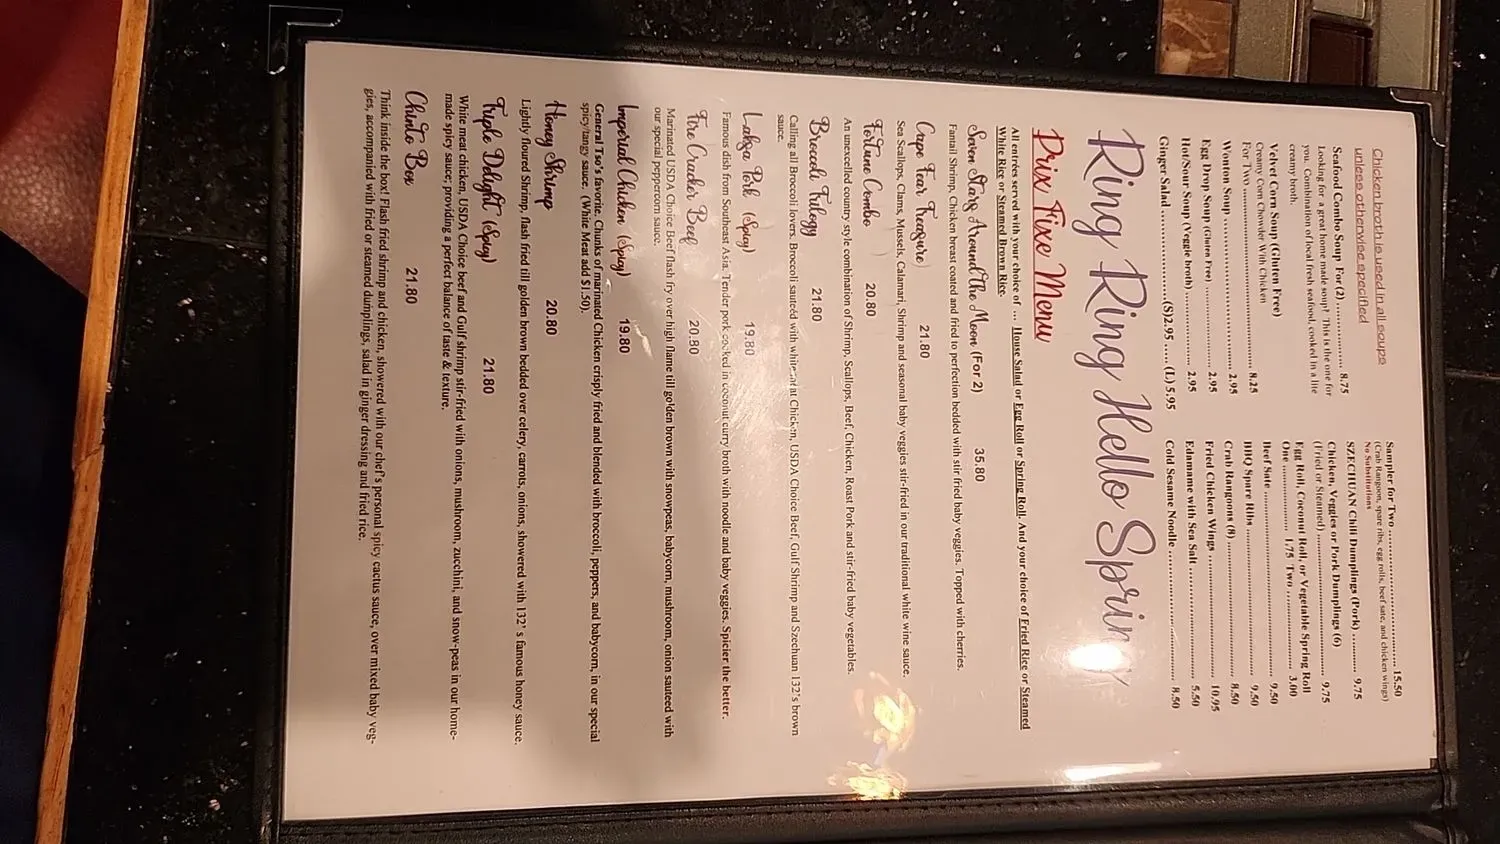 Chicken broth is used in all soups
unless otherwise specified
Seafood Combo Soup For (2) .......... 8.75
Looking for a great home made soup! This is the one for
you. Combination of local fresh seafood, cooked in a lite
creamy broth.
Velvet Corn Soup (Gluten Free)
Creamy Corn Chowder With Chicken
For Two .......................... 8.25
Wonton Soup .......................... 2.95
Egg Drop Soup (Gluten Free) .......... 2.95
Hot/Sour Soup (Veggie broth) .......... 2.95
Ginger Salad ....................(S)2.95 ....(L) 5.95
Sampler for Two .......................... 15.50
(Crab Rangoon, spare ribs, egg rolls, beef sate, and chicken wings)
No Substitutions
SZECHUAN Chili Dumplings (Pork) ..... 9.75
Chicken, Veggies or Pork Dumplings (6)
(Fried or Steamed) .......................... 9.75
Egg Roll, Coconut Roll, or Vegetable Spring Roll
One .............. 1.75 Two .............. 3.00
Beef Sate .......................... 9.50
BBQ Spare Ribs .......................... 9.50
Crab Rangoons (8) .......................... 8.50
Fried Chicken Wings .......................... 10.95
Edamame with Sea Salt .................. 5.50
Cold Sesame Noodle .......................... 8.50
Ring Ring Hello Spring
Prix Fixe Menu
All entrées served with your choice of ... House Salad or Egg Roll or Spring Roll. And your choice of Fried Rice or Steamed
White Rice or Steamed Brown Rice.
Seven Stars Around The Moon (For 2) 35.80
Fantail Shrimp, Chicken breast coated and fried to perfection bedded with stir fried baby veggies. Topped with cherries.
Cape Fear Treasure 21.80
Sea Scallops, Clams, Mussels, Calamari, Shrimp and seasonal baby veggies stir-fried in our traditional white wine sauce.
Fortune Combo 20.80
An unexcelled country style combination of Shrimp, Scallops, Beef, Chicken, Roast Pork and stir-fried baby vegetables.
Broccoli Trilogy 21.80
Calling all Broccoli lovers. Broccoli sautéed with white meat Chicken, USDA Choice Beef, Gulf Shrimp and Szechuan 132's brown
sauce.
Laksa Pork (Spicy) 19.80
Famous dish from Southeast Asia. Tender pork cooked in coconut curry broth with noodle and baby veggies. Spicier the better.
Fire Cracker Beef 20.80
Marinated USDA Choice Beef flash fry over high flame till golden brown with snowpeas, babycorn, mushroom, onion sauteed with
our special peppercorn sauce.
Imperial Chicken (Spicy) 19.80
General Tso's favorite. Chunks of marinated Chicken crisply fried and blended with broccoli, peppers, and babycorn, in our special
spicy/tangy sauce. (White Meat add $1.50).
Honey Shrimp 20.80
Lightly floured Shrimp, flash fried till golden brown bedded over celery, carrots, onions, showered with 132' s famous honey sauce.
Triple Delight (Spicy) 21.80
White meat chicken, USDA Choice beef and Gulf shrimp stir-fried with onions, mushroom, zucchini, and snow-peas in our home-
made spicy sauce; providing a perfect balance of taste & texture.
Chinto Box 21.80
Think inside the box! Flash fried shrimp and chicken, showered with our chef's personal spicy cactus sauce, over mixed baby veg-
gies, accompanied with fried or steamed dumplings, salad in ginger dressing and fried rice.